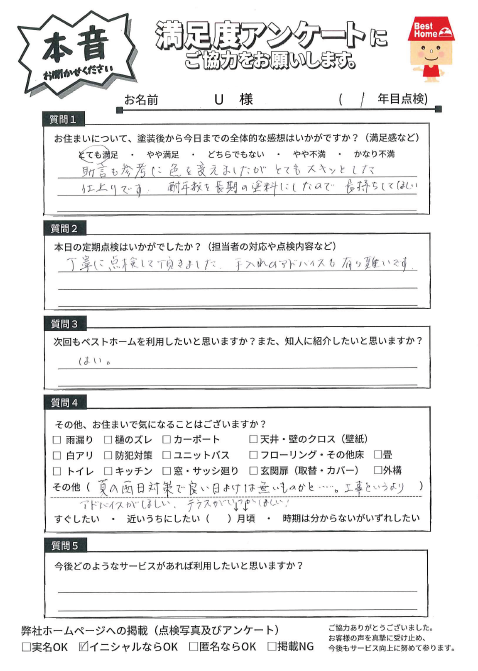 本音
お聞かせください
満足度アンケートに
ご協力をお願いします。
Best Home
お名前 U 様 ( 1 年目点検)
質問1
お住まいについて、塗装後から今日までの全体的な感想はいかがですか？（満足感など）
とても満足 ・ やや満足 ・ どちらでもない ・ やや不満 ・ かなり不満
助言も参考に色を変えましたがとてもスキッとした
仕上りです。耐年数を長期の塗料にしたので長持ちしてほしい
質問2
本日の定期点検はいかがでしたか？（担当者の対応や点検内容など）
丁寧に点検して頂きました。手入れのアドバイスも有り難いです。
質問3
次回もベストホームを利用したいと思いますか？また、知人に紹介したいと思いますか？
はい。
質問4
その他、お住まいで気になることはございますか？
□ 雨漏り □ 樋のズレ □ カーポート □ 天井・壁のクロス（壁紙）
□ 白アリ □ 防犯対策 □ ユニットバス □ フローリング・その他床 □畳
□ トイレ □ キッチン □ 窓・サッシ廻り □ 玄関扉（取替・カバー） □外構
その他（ 夏の西日対策で良い日よけは無いものかと……。工事というより ）
アドバイスがほしい、テラスがいいほしい！
すぐしたい ・ 近いうちにしたい（ ）月頃 ・ 時期は分からないがいずれしたい
質問5
今後どのようなサービスがあれば利用したいと思いますか？
弊社ホームページへの掲載（点検写真及びアンケート）
□実名OK ☑イニシャルならOK □匿名ならOK □掲載NG
ご協力ありがとうございました。
お客様の声を真摯に受け止め、
今後もサービス向上に努めて参ります。